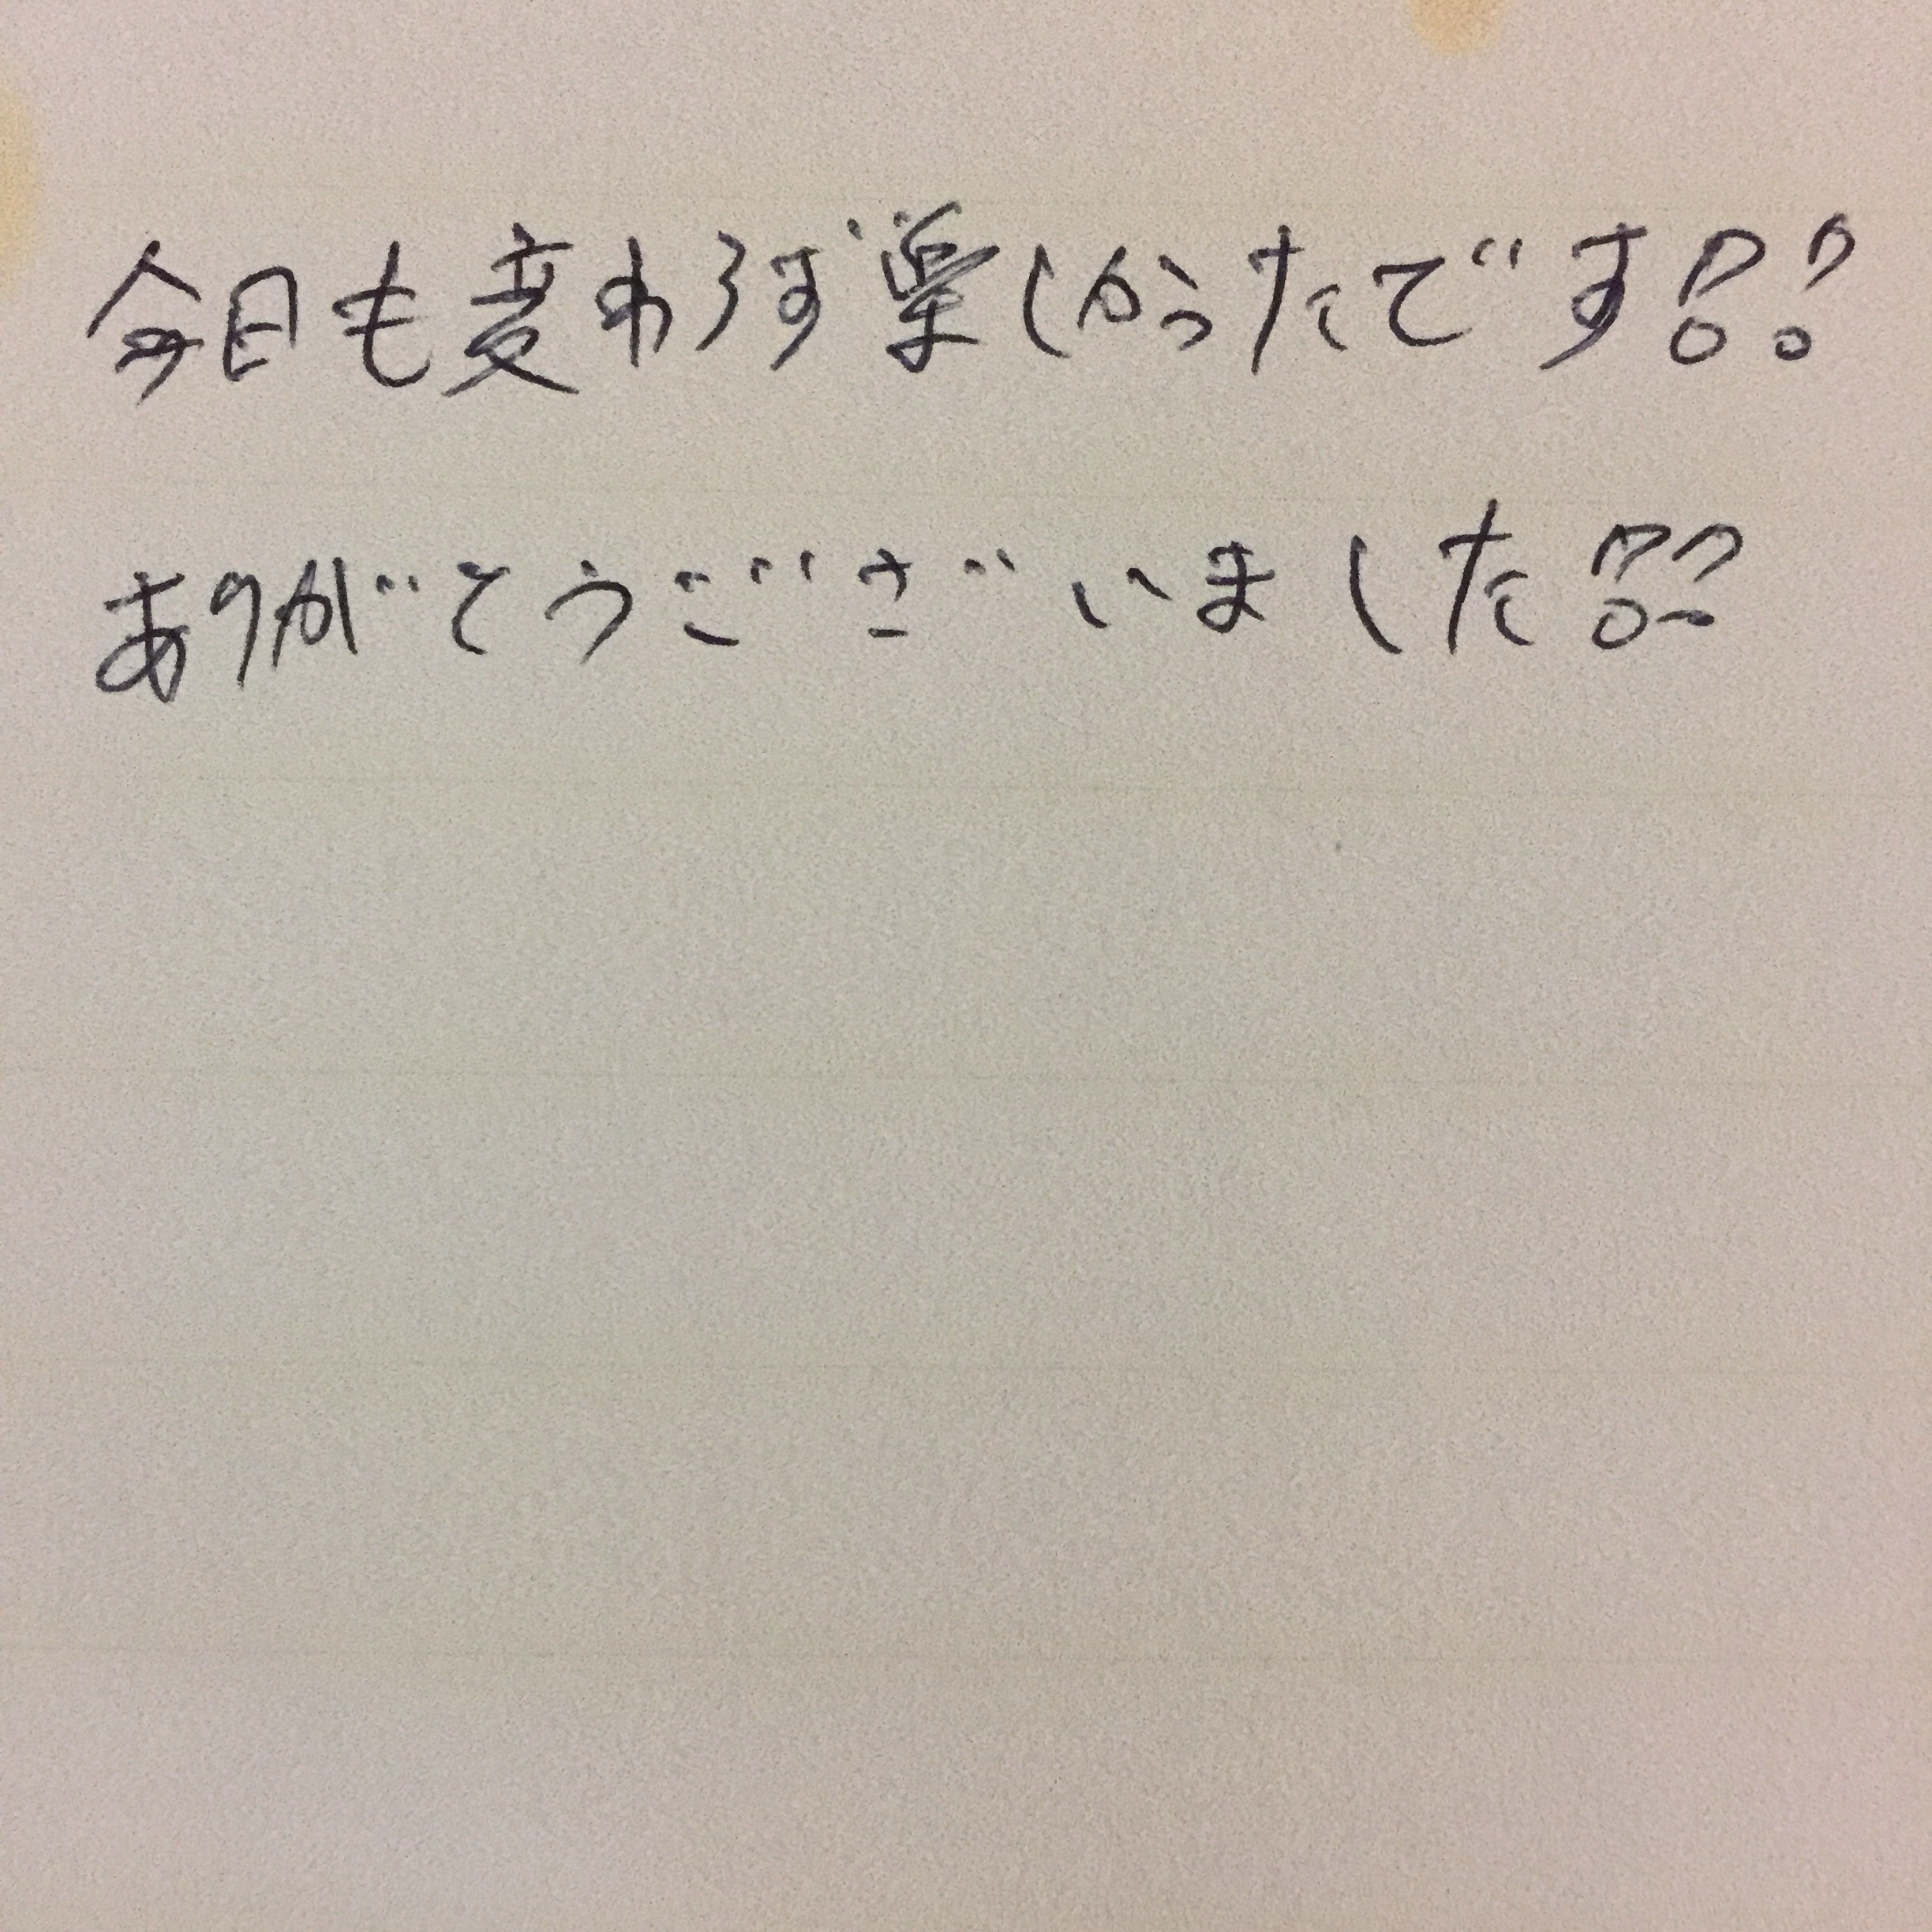 今日も変わらず楽しかったです??
ありがとうございました??